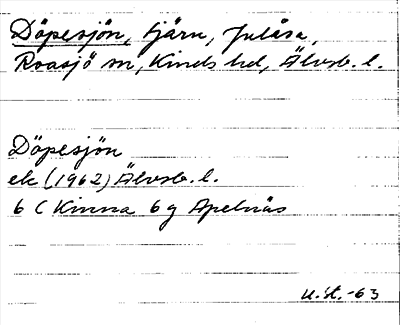 Döpesjön, tjärn, Julåsa,
Roasjö sn, Kinds hd, Älvsb. l.
Döpesjön
ek (1962) Älvsb. l.
6 C Kinna 6 g Apelnäs
U.S.-63